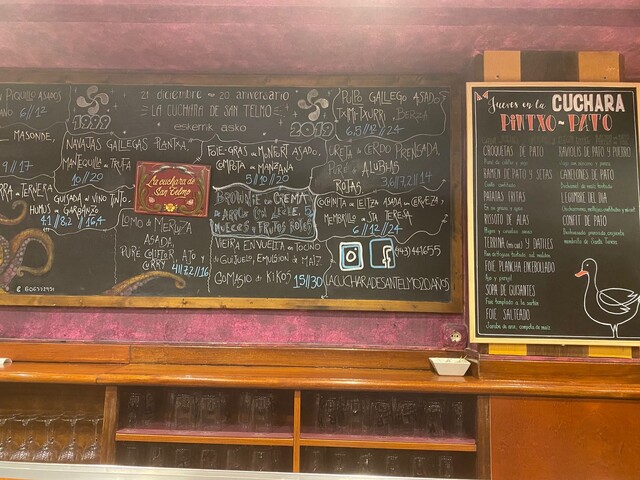 PIQUILLO ASADOS
6//12
MASONDE,
9//17
TERNERA
NAVAJAS GALLEGAS PLANTXA,
MANTEQUILLA DE TRUFA
10//20
GUISADA al VINO TINTO,
HUMUS de GARBANZO
4,1/8,2//16,4
21 diciembre - 20 aniversario
LA CUCHARA DE SAN TELMO
eskerrik asko
1999
2019
La cuchara de
San Telmo
LOMO de MERLUZA
ASADA,
PURÉ COLIFLOR, AJO y
CURRY
FOIE-GRAS de MONFORT ASADO,
COMPOTA de MANZANA
5//10//20
BROWNIE con CREMA
de ARROZ con LECHE,
NUECES y FRUTOS ROJOS
VIEIRA ENVUELTA en TOCINO
de GUIJUELO, EMULSION de MAIZ
GOMASIO de KIKOS 15//30
PULPO GALLEGO ASADO,
TXIMITXURRI, BERZA
6,5//12//24
OREJA de CERDO PRENSADA,
PURÉ ALUBIAS
ROJAS 3,6//7,2//14
COCHINITA de LEITZA ASADA con CEREZA,
MEMBRILLO de STA TERESA
6//12//24
(943)441655
LACUCHARADESANTELMO20AÑOS
Jueves en la CUCHARA
PINTXO - PATO
CROQUETAS DE PATO
RAMEN DE PATO Y SETAS
PATATAS FRITAS
RISSOTO DE ALAS
TERRINA (micuit) Y DATILES
FOIE PLANCHA ENROLLADO
SOPA DE GUISANTES
FOIE SALTEADO
RAVIOLES DE PATO Y PUERRO
CANELONES DE PATO
LEGUMBRE DEL DIA
CONFIT DE PATO